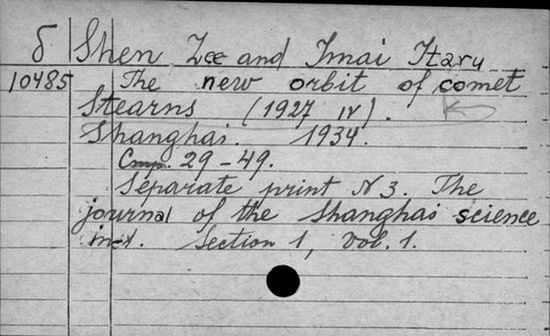 б Shen Zee and Imai Itaru
10485 The new orbit of comet
Stearns (1927 IV).
Shanghai. 1934.
Стр. 29-49.
Separate print N 3. The
journal of the Shanghai science
inst. Section 1, vol. 1.